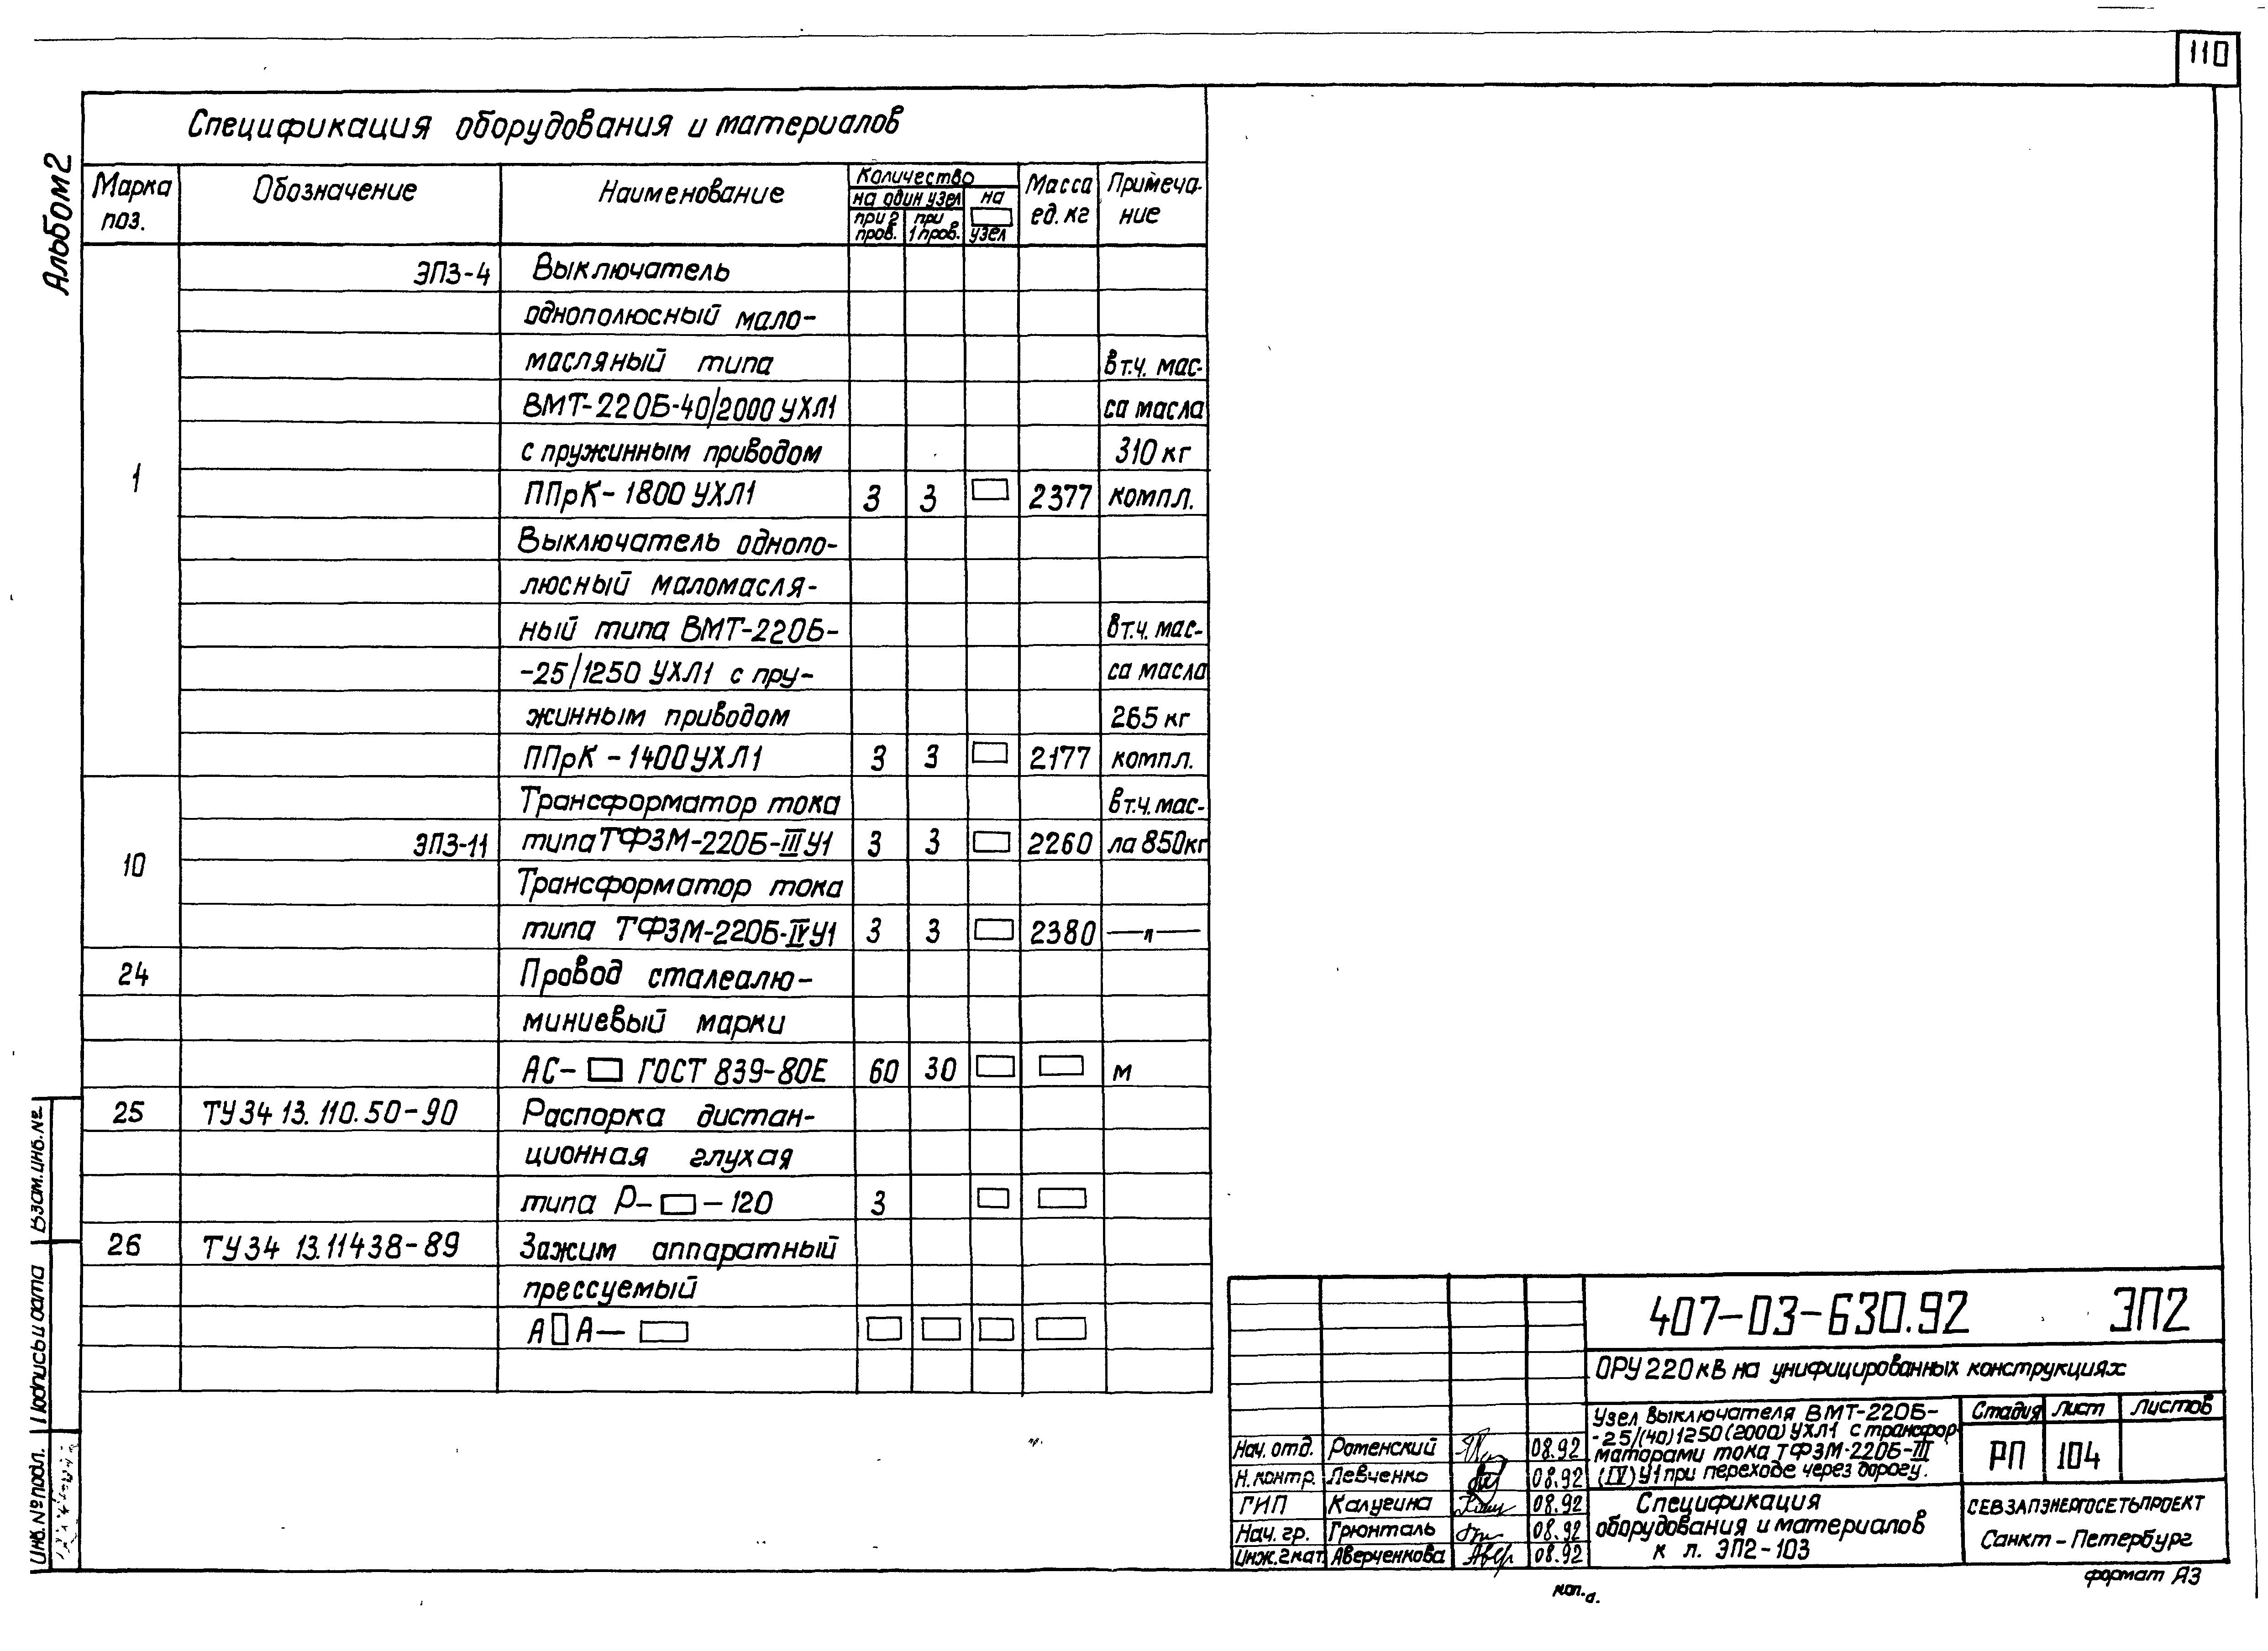 110
Альбом 2
Спецификация оборудования и материалов
Марка поз. Обозначение Наименование Количество Масса ед. кг Примечание
на один узел на □ узел
при 2 пров. при 1 пров.
1 ЭП3-4 Выключатель
однополюсный мало-
масляный типа в т.ч. мас-
ВМТ-220Б-40/2000 УХЛ1 са масла
с пружинным приводом 310 кг
ППрК-1800 УХЛ1 3 3 □ 2377 компл.
Выключатель однопо-
люсный маломасля-
ный типа ВМТ-220Б- в т.ч. мас-
-25/1250 УХЛ1 с пру- са масла
жинным приводом 265 кг
ППрК-1400 УХЛ1 3 3 □ 2177 компл.
10 Трансформатор тока в т.ч. мас-
ЭП3-11 типа ТФЗМ-220Б-III У1 3 3 □ 2260 ла 850 кг
Трансформатор тока
типа ТФЗМ-220Б-IV У1 3 3 □ 2380 —"—
24 Провод сталеалю-
миниевый марки
АС-□ ГОСТ 839-80Е 60 30 □ □ м
25 ТУ34 13.110.50-90 Распорка дистан-
ционная глухая
типа Р-□-120 3 □ □
26 ТУ34 13.11438-89 Зажим аппаратный
прессуемый
А□А-□ □ □ □ □
407-03-630.92 ЭП2
ОРУ 220 кВ на унифицированных конструкциях
Узел выключателя ВМТ-220Б-
-25/(40)1250(2000) УХЛ1 с трансфор-
маторами тока ТФЗМ-220Б-III
(IV) У1 при переходе через дорогу.
Стадия Лист Листов
РП 104
Нач. отд. Роменский 08.92
Н. контр. Левченко 08.92
ГИП Калугина 08.92
Нач. гр. Грюнталь 08.92
Инж. 2 кат. Аверченкова 08.92
Спецификация
оборудования и материалов
к л. ЭП2-103
СЕВЗАПЭНЕРГОСЕТЬПРОЕКТ
Санкт-Петербург
формат А3
коп.
Инв. № подл. Подпись и дата Взам. инв. №